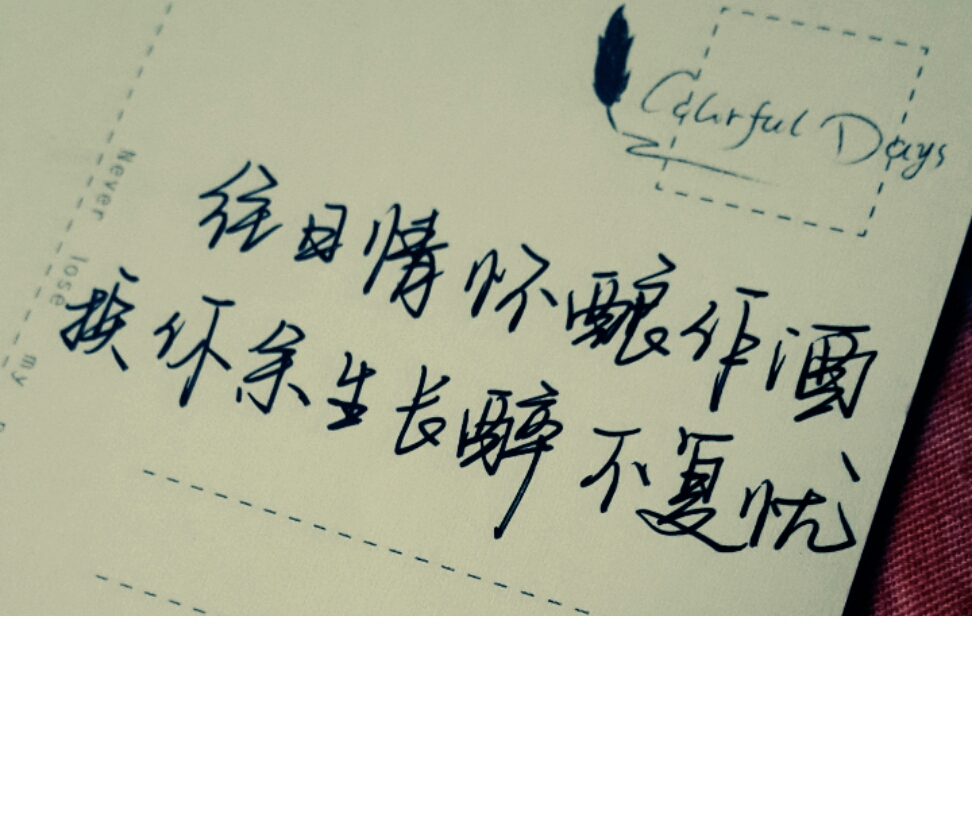 Colorful Days
往日情怀酿作酒
换你余生长醉不复忧
Never lose my